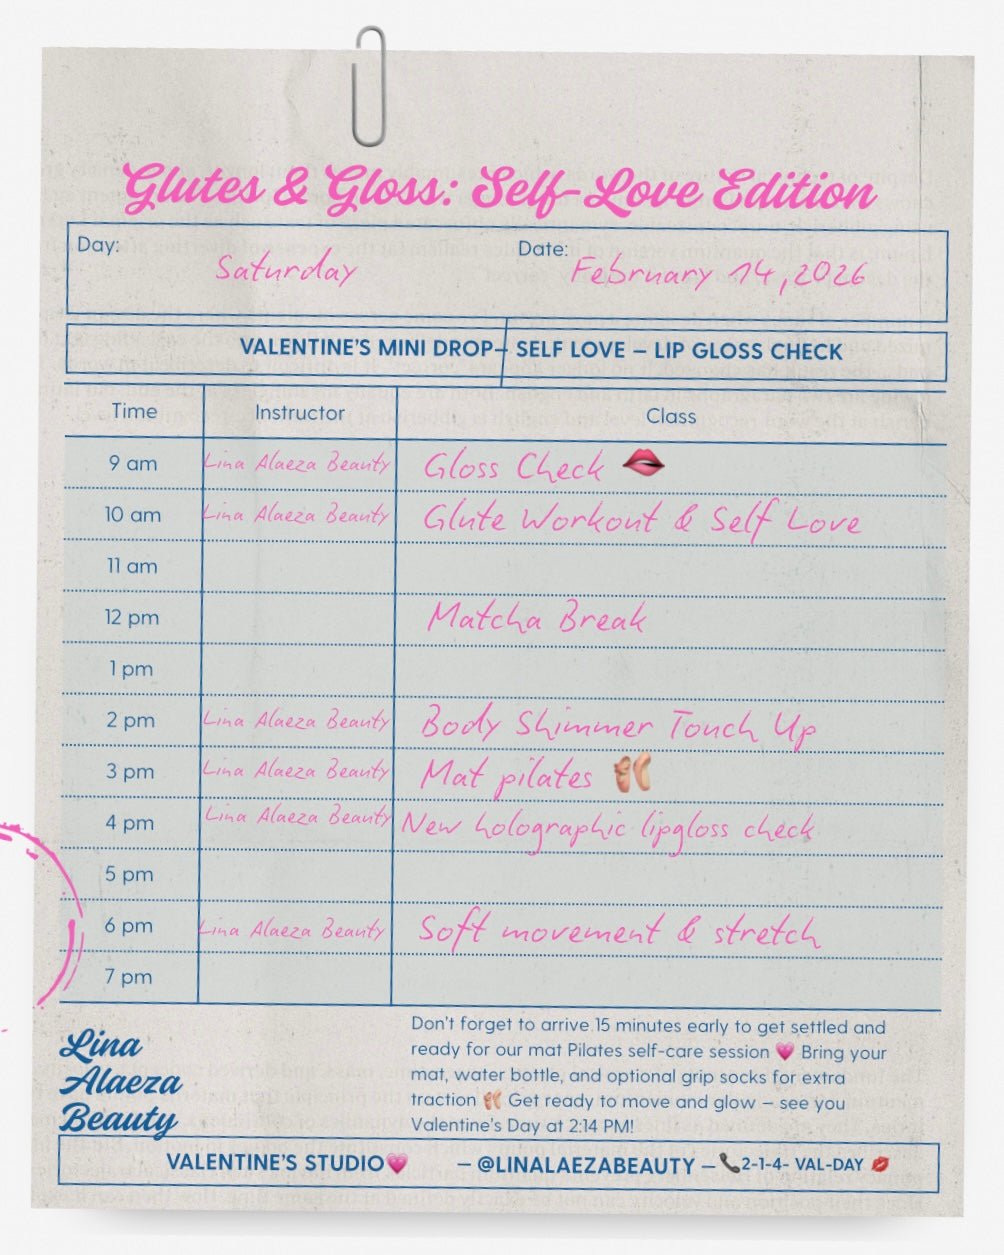 Glutes & Gloss: Self-Love Edition
Day: Saturday Date: February 14, 2026
VALENTINE'S MINI DROP– SELF LOVE – LIP GLOSS CHECK
Time Instructor Class
9 am Lina Alaeza Beauty Gloss Check 🫦
10 am Lina Alaeza Beauty Glute Workout & Self Love
11 am
12 pm Matcha Break
1 pm
2 pm Lina Alaeza Beauty Body Shimmer Touch Up
3 pm Lina Alaeza Beauty Mat pilates 🩰
4 pm Lina Alaeza Beauty New holographic lipgloss check
5 pm
6 pm Lina Alaeza Beauty Soft movement & stretch
7 pm
Lina
Alaeza
Beauty
Don't forget to arrive 15 minutes early to get settled and
ready for our mat Pilates self-care session 💗 Bring your
mat, water bottle, and optional grip socks for extra
traction 🩰 Get ready to move and glow – see you
Valentine's Day at 2:14 PM!
VALENTINE'S STUDIO💗 – @LINALAEZABEAUTY – 📞2-1-4- VAL-DAY 💋